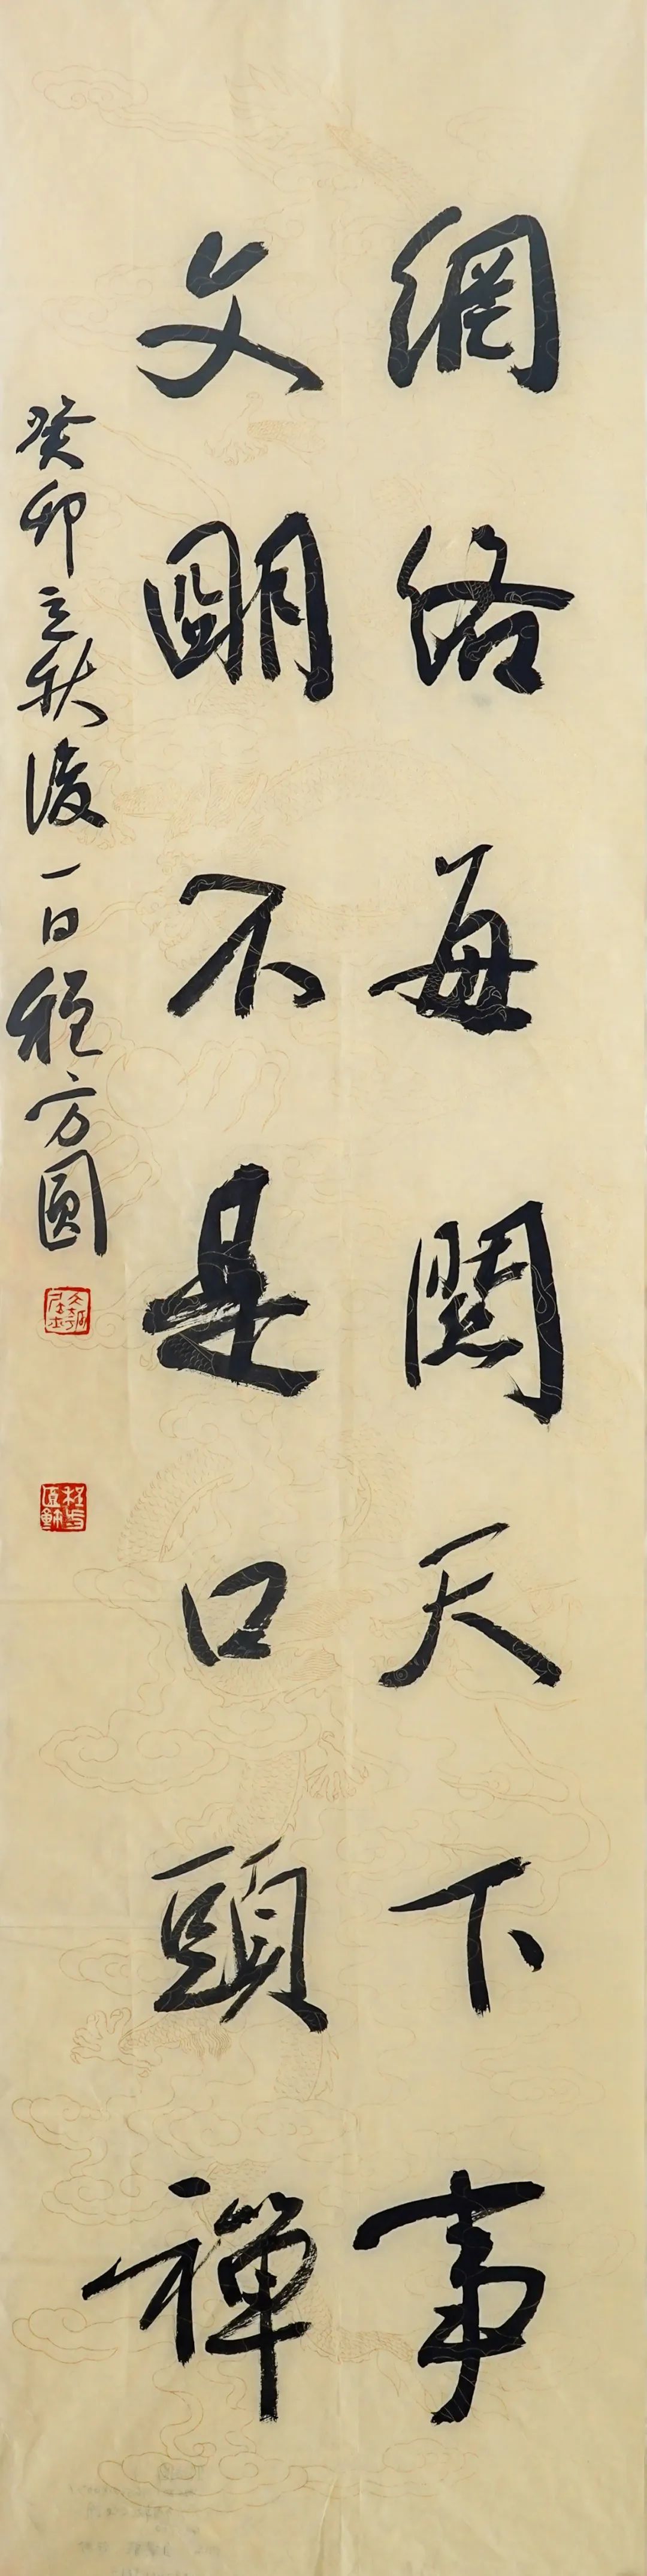 網絡每關天下事
文朙不是口頭禪
癸卯立秋後一日程方圓